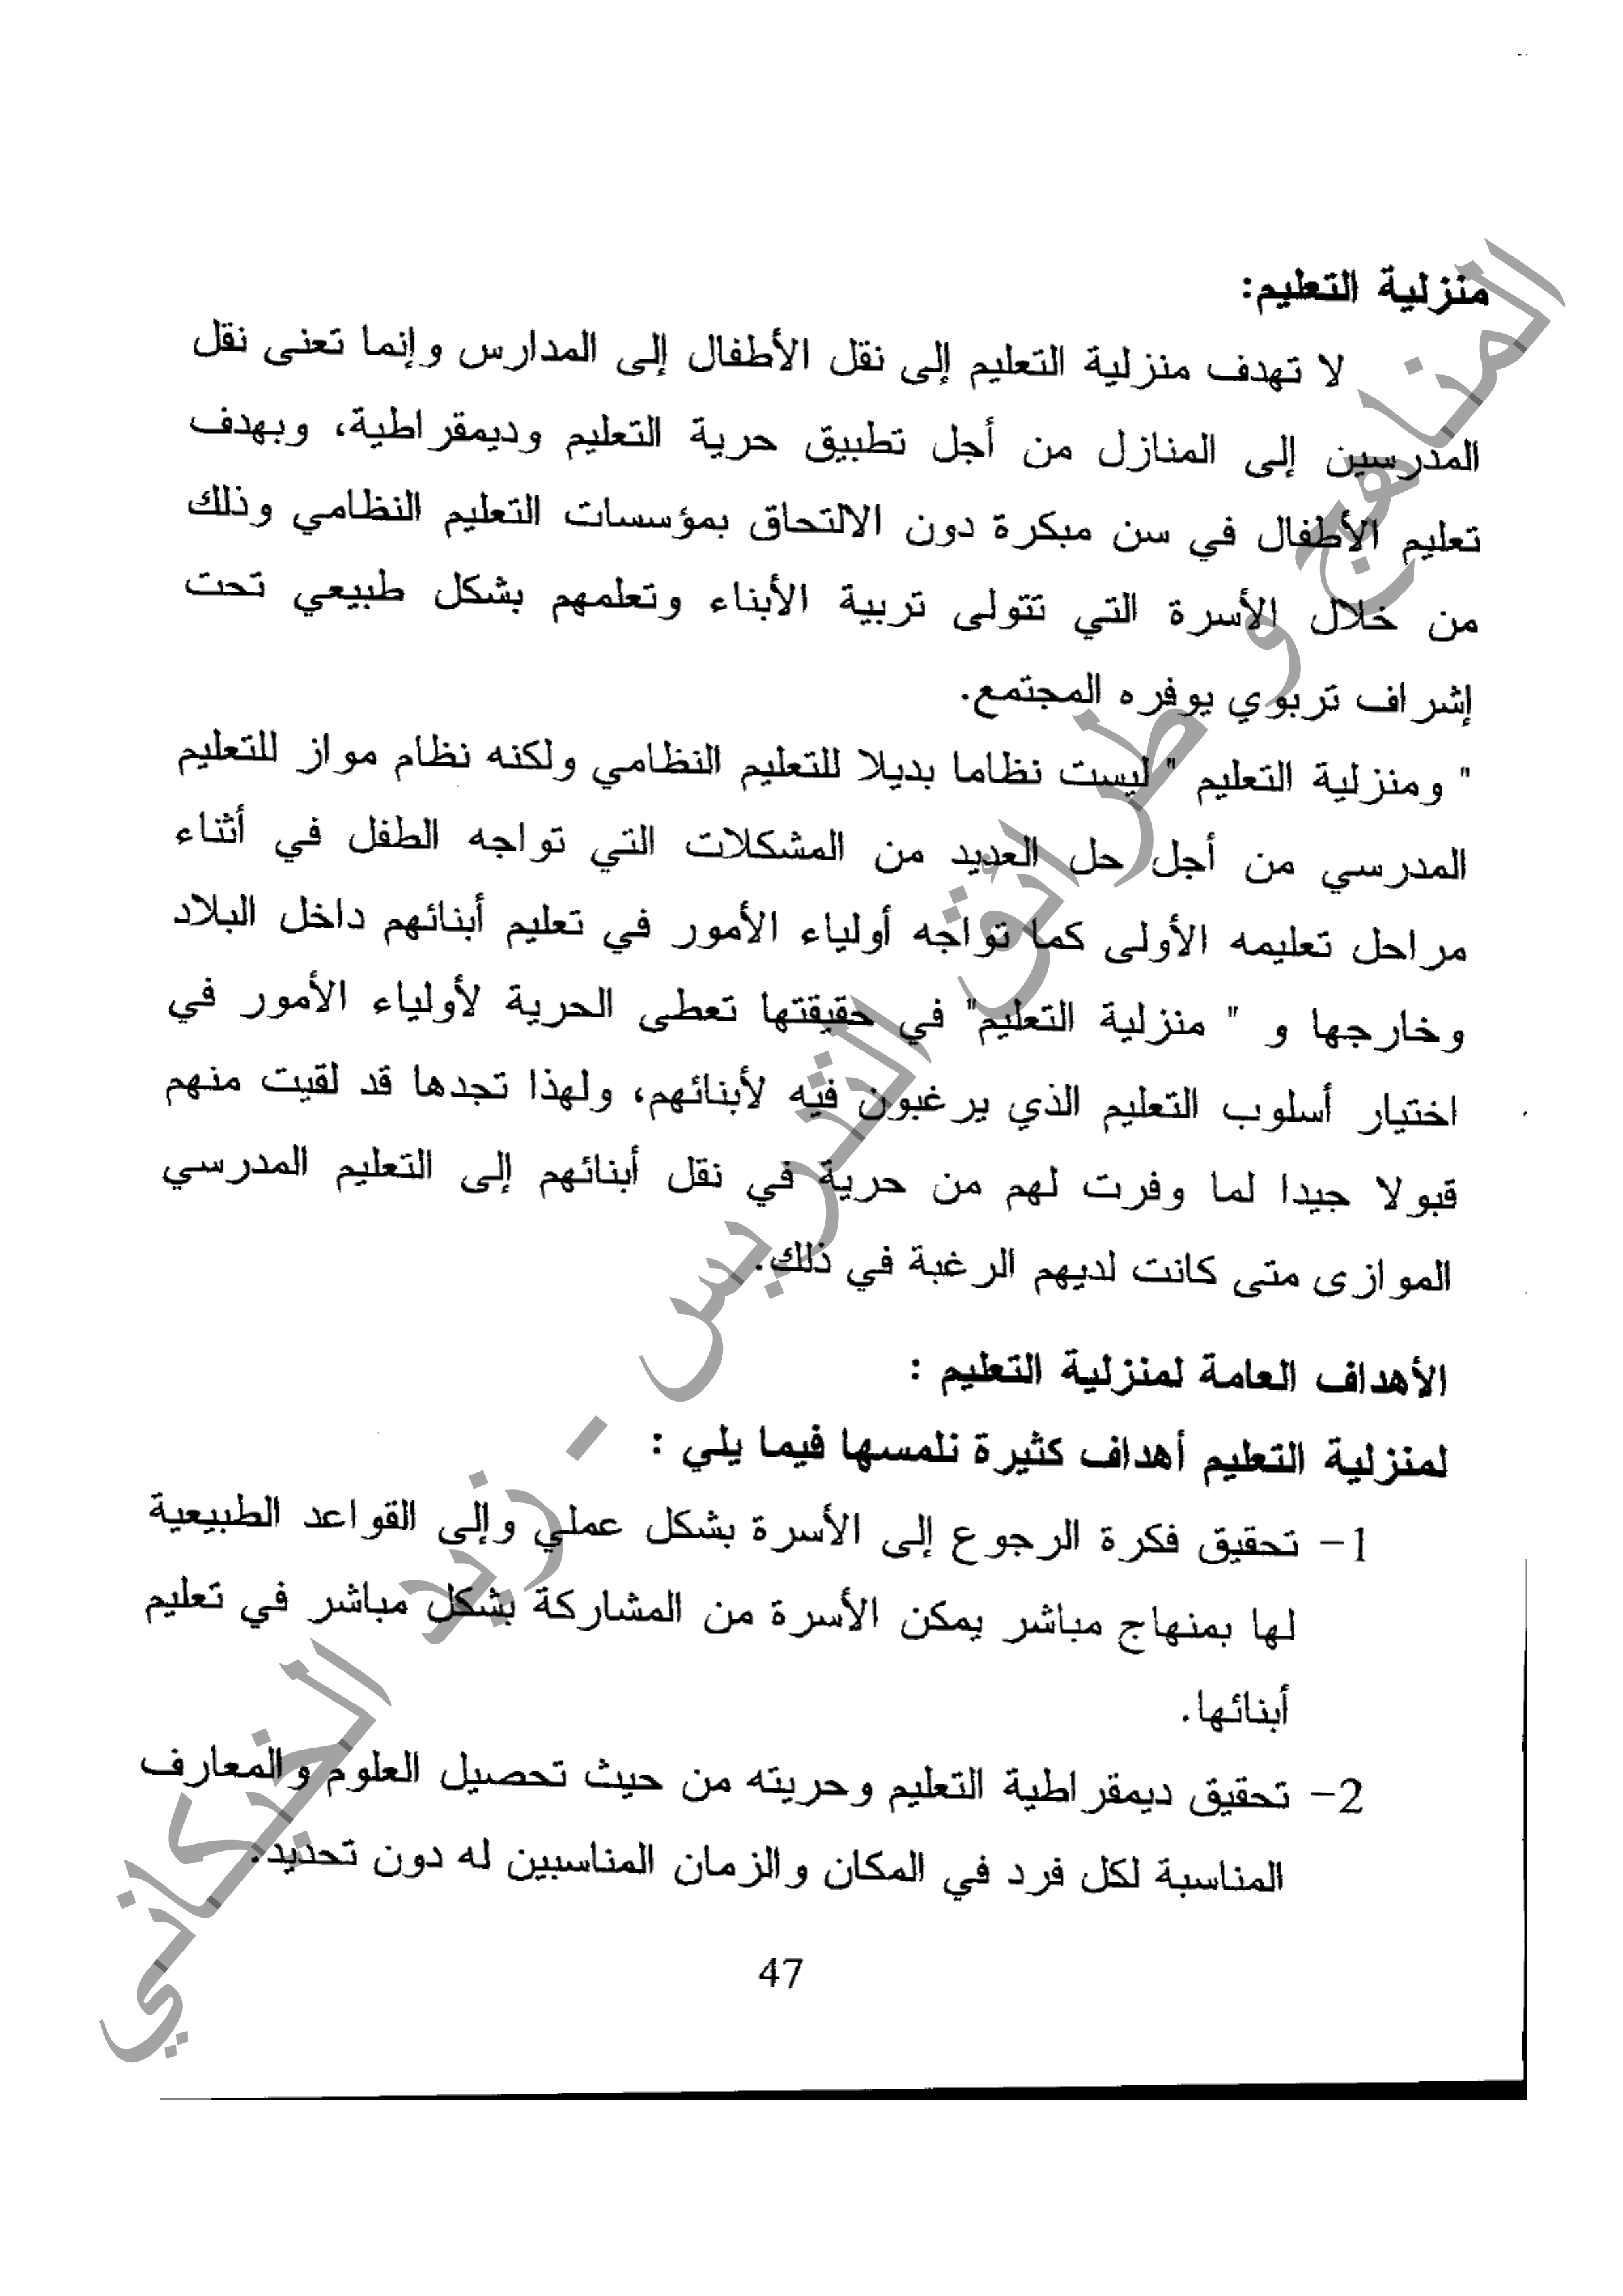 منزلية التعليم:
لا تهدف منزلية التعليم إلى نقل الأطفال إلى المدارس وإنما تعنى نقل
المدرسين إلى المنازل من أجل تطبيق حرية التعليم وديمقراطية، وبهدف
تعليم الأطفال في سن مبكرة دون الالتحاق بمؤسسات التعليم النظامي وذلك
من خلال الأسرة التي تتولى تربية الأبناء وتعلمهم بشكل طبيعي تحت
إشراف تربوي يوفره المجتمع.
" ومنزلية التعليم " ليست نظاما بديلا للتعليم النظامي ولكنه نظام مواز للتعليم
المدرسي من أجل حل العديد من المشكلات التي تواجه الطفل في أثناء
مراحل تعليمه الأولى كما تواجه أولياء الأمور في تعليم أبنائهم داخل البلاد
وخارجها و " منزلية التعليم" في حقيقتها تعطى الحرية لأولياء الأمور في
اختيار أسلوب التعليم الذي يرغبون فيه لأبنائهم، ولهذا تجدها قد لقيت منهم
قبولا جيدا لما وفرت لهم من حرية في نقل أبنائهم إلى التعليم المدرسي
الموازى متى كانت لديهم الرغبة في ذلك.
الأهداف العامة لمنزلية التعليم :
لمنزلية التعليم أهداف كثيرة نلمسها فيما يلي :
1- تحقيق فكرة الرجوع إلى الأسرة بشكل عملي وإلى القواعد الطبيعية
لها بمنهاج مباشر يمكن الأسرة من المشاركة بشكل مباشر في تعليم
أبنائها.
2- تحقيق ديمقراطية التعليم وحريته من حيث تحصيل العلوم والمعارف
المناسبة لكل فرد في المكان والزمان المناسبين له دون تحديد.
47
المناهج و طرائق التدريس - زيد الخيكاني